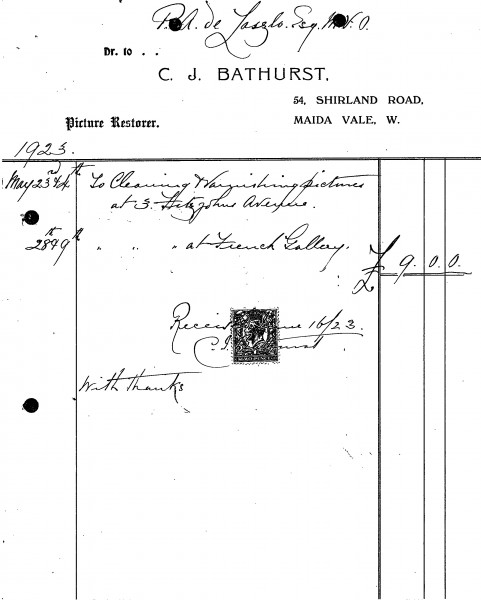 P. A. de Laszlo. Esq. M.V.O.
Dr. to . .
C. J. BATHURST,
54, SHIRLAND ROAD,
Picture Restorer.
MAIDA VALE, W.
1923.
May 23rd & 4th To Cleaning & Varnishing pictures
at 3. Fitzjohns Avenue.
28th & 9th " " " at French Gallery.
£ 9. 0. 0.
16/23.
C. J.
With thanks